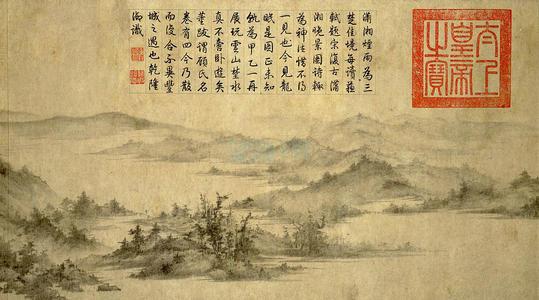 瀟湘煙雨為三
楚佳境每讀蘇
軾題宋復古瀟
湘晚景圖詩輙
為神往惜不得
一見也今見龍
眠是圖正未知
孰為甲乙一再
展玩雲山水
真不啻卧遊矣
董跋謂顧氏名
卷有四今乃散
而復合亦異豐
城之遇也乾隆
御識
太上
皇帝
之寶